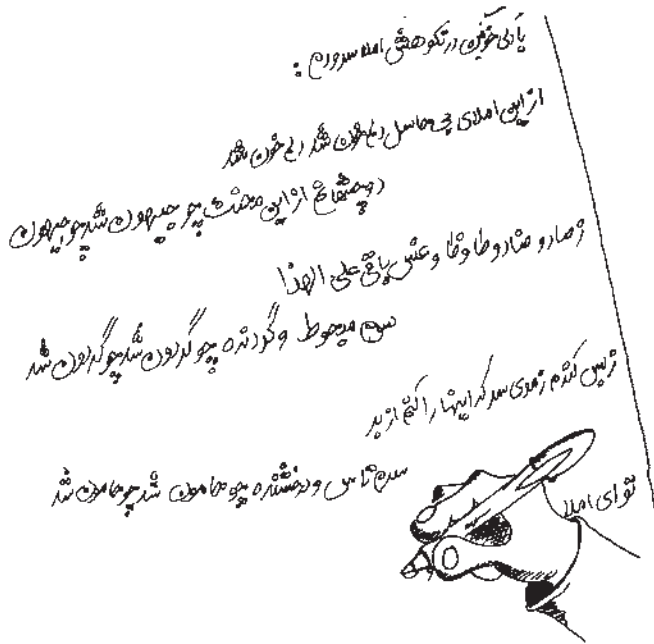 با دلی خونین در نکوهش املا سرودم :
از این املای بی حاصل دلم خون شد دلم خون شد
دو چشمانم از این محنت چو جیهون شد چو جیهون
ز صاد و ضاد و طا و ظا و عش باقی علی الهذا
سرم مبهوط و گردنده چو گردون شد چو گردون شد
ز بس کندم ز موی سر که اینها را کنم از بر
سرم تاس و درخشنده چو هامون شد چو هامون شد
تو ای املا